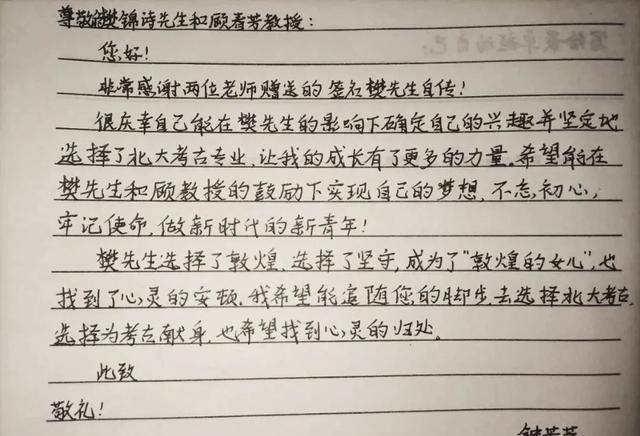 尊敬的樊锦诗先生和顾春芳教授：
您好！
非常感谢两位老师赠送的签名樊先生自传！
很庆幸自己能在樊先生的影响下确定自己的兴趣并坚定地
选择了北大考古专业，让我的成长有了更多的力量。希望能在
樊先生和顾教授的鼓励下实现自己的梦想，不忘初心，
牢记使命，做新时代的新青年！
樊先生选择了敦煌，选择了坚守，成为了“敦煌的女儿”，也
找到了心灵的安顿。我希望能追随您的脚步，去选择北大考古，
选择为考古献身，也希望找到心灵的归处。
此致
敬礼！